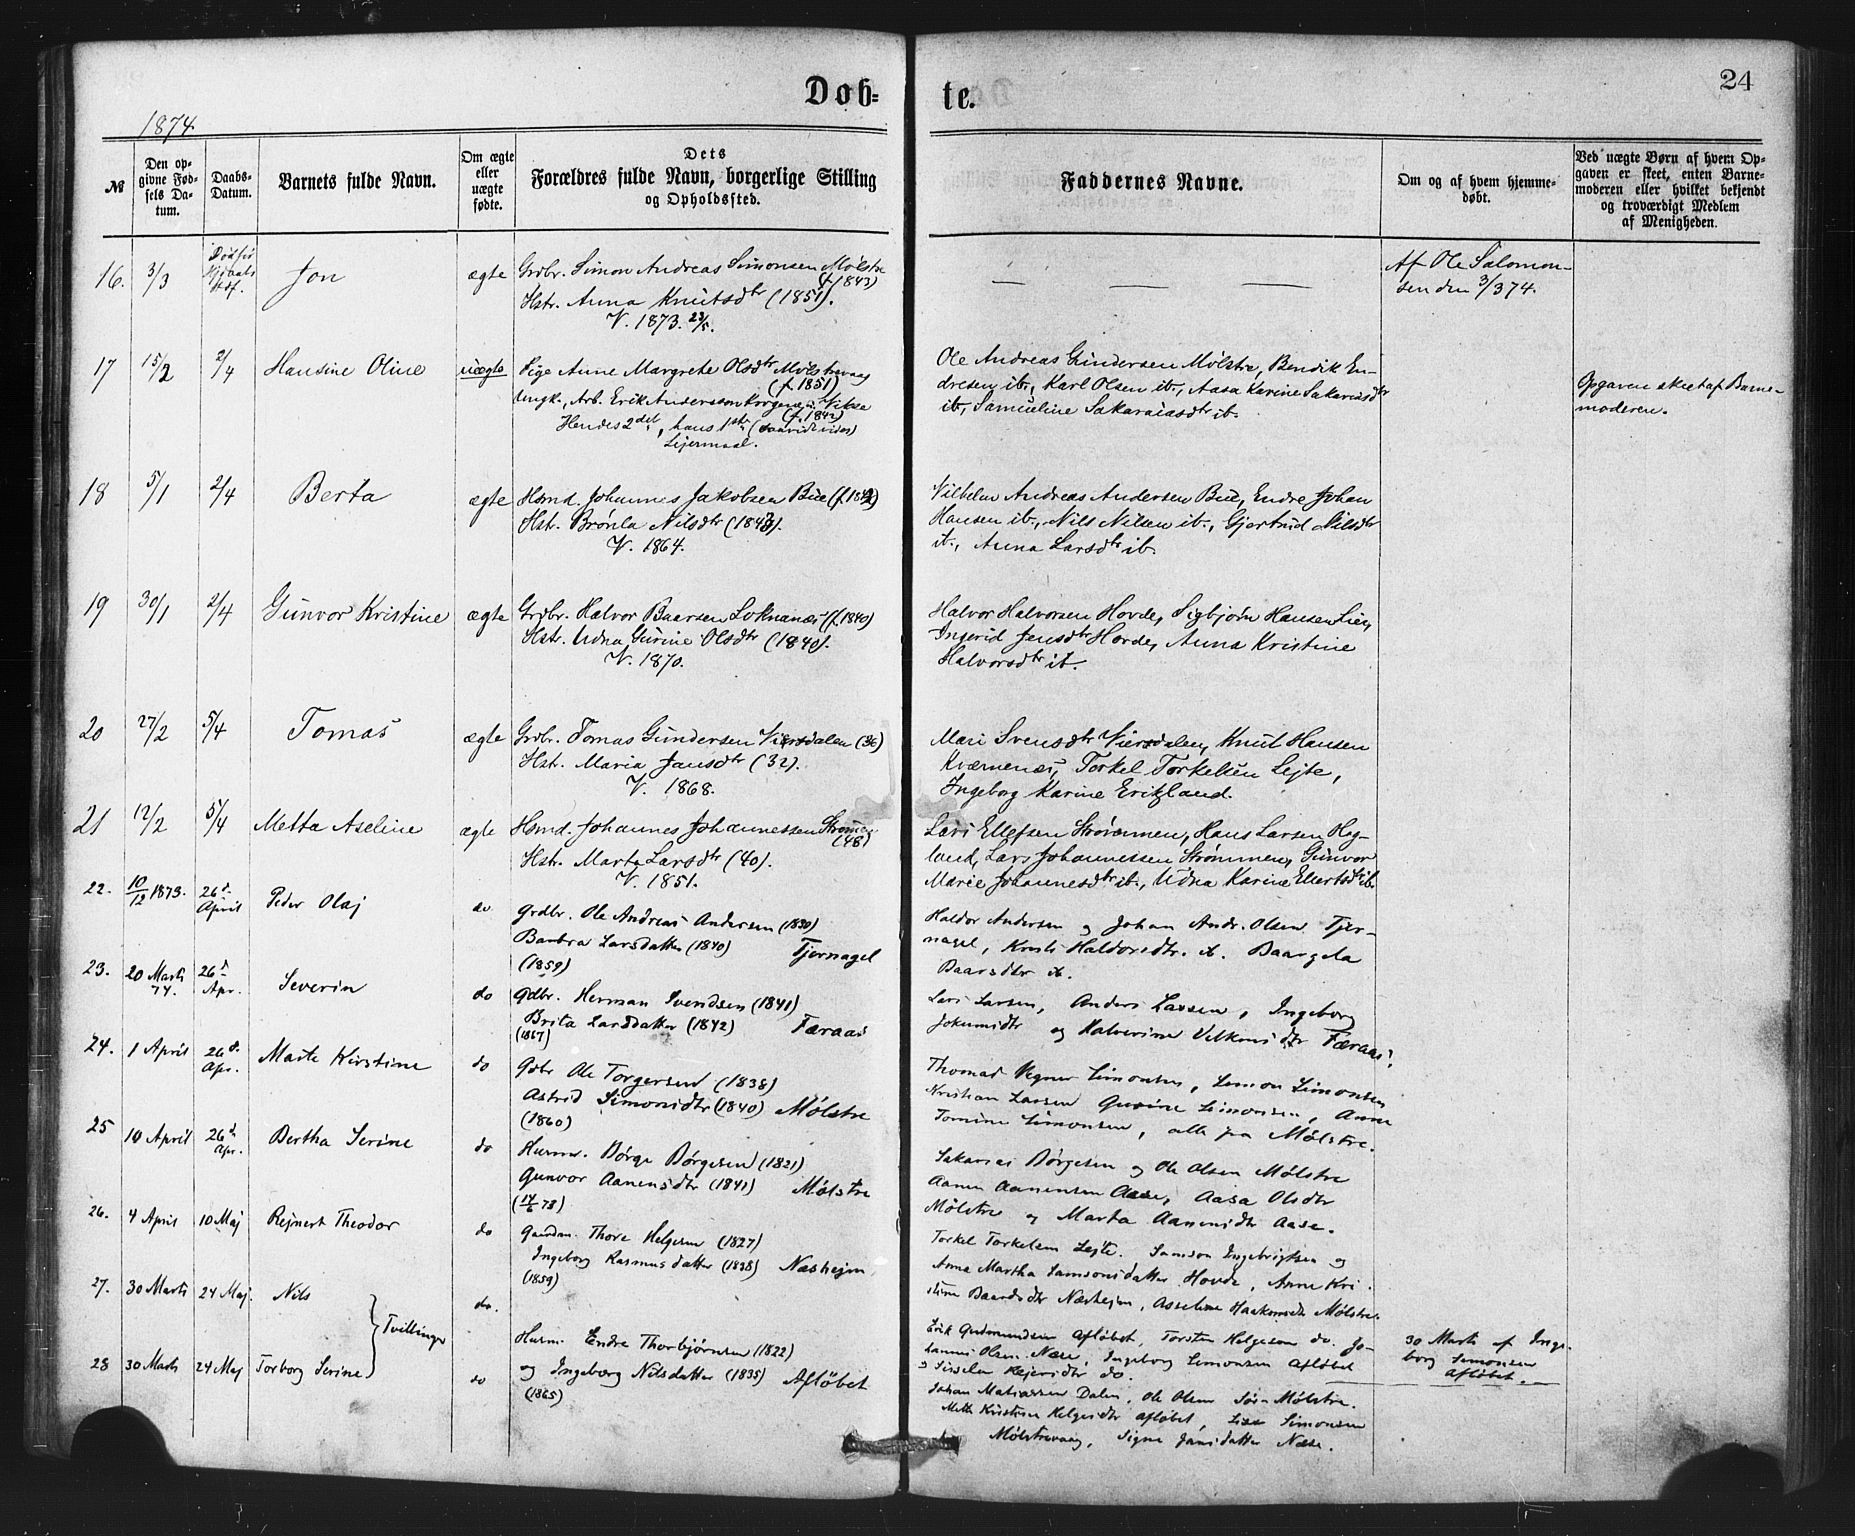 Døb=
te.
24
1874
№
Den opgivne Fødsels Datum.
Daabs-Datum.
Barnets fulde Navn.
Om ægte eller uægte fødte.
Dets
Forældres fulde Navn, borgerlige Stilling
og Opholdssted.
Faddernes Navne.
Om og af hvem hjemmedøbt.
Ved uægte Børn af hvem Opgaven er skeet, enten Barnemoderen eller hvilket bekjendt og troværdigt Medlem af Menigheden.
16. 3/3 Jon ægte Grdbr. Simon Andreas Simonsen Mølstre
(f. 1843)
Hstr. Anna Knutsdtr (1851).
V. 1873. 23/5.
— — —
Af Ole Salomon-
sen den 3/3 74.
17 15/2 2/4 Hansine Oline uægte Pige Anne Margrete Olsdtr Mølstrevaag
(f. 1851)
Ungk., Arb. Erik Andersson Norgene, Vikse
(f. 1842)
Hendes 2det, hans 1ste (saavidt vides)
Lejermaal.
Ole Andreas Gundersen Mølstre, Bendik En-
dresen ib., Karl Olsen ib., Aasa Karine Sakariasdtr
ib., Samueline Sakariasdtr ib.
Opgaven skeet af Barne-
moderen.
18 5/1 2/4 Berta ægte Hsmd. Johannes Jakobsen Bue (f. 1842)
Hstr. Brønla Nilsdtr (1843).
V. 1864.
Vilhelm Andreas Andersen Bue, Endre Johan
Hansen ib., Nils Nilsen ib., Gjertrud Nilsdtr
ib., Anna Larsdtr ib.
19 30/1 2/4 Gunvor Kristine ægte Grdbr. Halvor Baarsen Loknanæs (f. 1840)
Hstr. Udna Gurine Olsdtr (1840).
V. 1870.
Halvor Halvorsen Hovde, Sigbjørn Hansen Lier,
Ingerid Jensdtr Hovde, Anna Kristine
Halvorsdtr ib.
20 27/2 5/4 Tomas ægte Grdbr. Tomas Gundersen Viersdalen (36)
Hstr. Maria Jansdtr (32).
V. 1868.
Mari Svensdtr Viersdalen, Knut Hansen
Kværnenæs, Torkel Torkelsen Lejte,
Ingeborg Karine Erikland.
21 12/2 5/4 Metta Aseline ægte Hsmd. Johannes Johannessen Strømmen
(48)
Hstr. Marta Larsdtr (40).
V. 1851.
Lars Ellefsen Strømmen, Hans Larsen Hog-
land, Lars Johannessen Strømmen, Gunvor
Marie Johannesdtr ib., Udna Karine Elertsdtr ib.
22. 10/12 1873. 26d April Peder Olaj do Grdbr. Ole Andreas Andersen (1830)
Barbra Larsdatter (1840) Tjernagel
(1859)
Haldor Andersen og Johan Andr. Olsen Tjer-
nagel, Kristi Haldorsdtr. ib. Baargela
Baarsdtr ib.
23. 20 Marts 74. 26d Apr. Severin do Gdbr. Herman Svendsen (1841)
Brita Larsdatter (1842) Færaas
(1867)
Lars Larsen, Anders Larsen, Ingeborg
Jokumsdtr og Halverine Velkomsdtr Færaas.
24. 1 April 26d. Apr. Marte Kirstine do Gdbr Ole Torgersen (1838)
Astrid Simonsdtr (1840) Mølstre
(1860)
Thomas Vegner Simonsen, Simon Simonsen
Kristian Larsen Gurine Simonsen, Anne
Tomine Simonsen, alle fra Mølstre.
25 10 April 26d Apr. Bertha Serine do Husm. Børge Børgesen (1821)
Gunvor Aanensdtr (1841) Mølstre
(14/6 73)
Sakarias Børgesen og Ole Olsen Mølstre
Aanen Aanensen Aase, Aasa Olsdtr
Mølstre og Marta Aanensdtr Aase.
26. 4 April 10 Maj Rejnert Theodor do Gaardm. Thore Helgesen (1827)
Ingeborg Rasmusdatter (1838) Næshejm
(1859)
Torkel Torkelsen Lejte. Samson Ingebrigtsen og
Anne Martha Samsonsdatter Hovde, Anne Kri-
stine Baardsdtr Næshejm, Asseline Haakonsdtr Mølstre.
27. 30 Marts 24 Maj. Nils do.
Tvillinger
Husm. Endre Thorbjørnsen (1822)
Erik Gudmundsen Afløbet, Torsten Helgesen do. Jo-
hannes Olsen Næse, Ingeborg Simonsen Afløbet
og Sisselen Rejersdtr do.
30 Marts af Inge-
borg Simonsen
Afløbet.
28 30 Marts 24 Maj Torborg Serine do og Ingeborg Nilsdatter (1835) Afløbet
(1865)
Johan Matiassen Dalen, Ole Olsen Sør-Mølstre.
Mette Kristine Helgesdtr Afløbet, Lisa Simonsen
Mølstrevaag, Signe Jansdatter Næse.